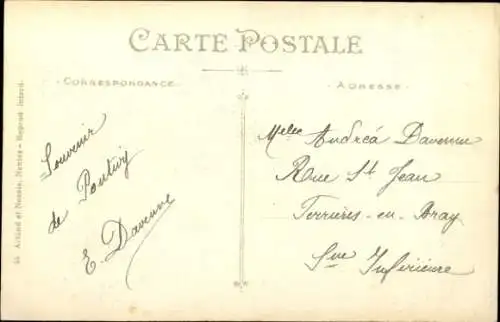 CARTE POSTALE
CORRESPONDANCE
ADRESSE
Souvenir
de Pontivy
E. Davenne
Melle Andréa Davenne
Rue St Jean
Ferrières-en-Bray
Sne Inférieure
Artaud et Nozais, Nantes - Reprod. interd.